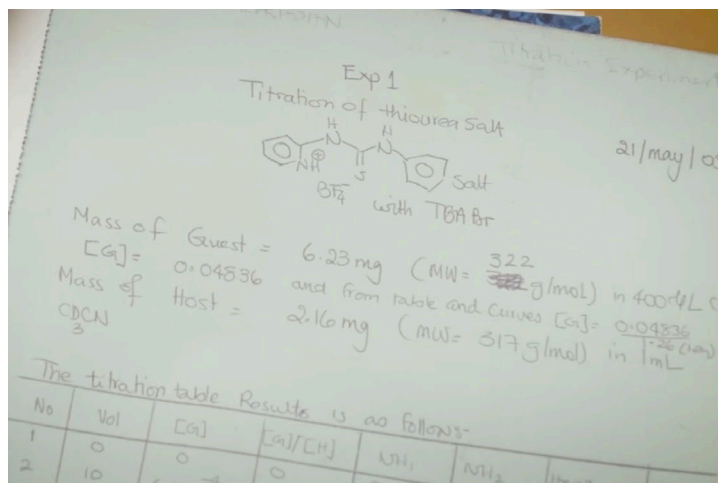 Titration Experiment
Exp 1
Titration of thiourea Salt
21/may/0
H
N
H
N
NH
⊕
S
BF4
Salt
with TBABr
Mass of Guest = 6.23 mg (MW = 322 g/mol) in 400 µL
[G] = 0.04836 and from table and Curves [G] = 0.04836
Mass of Host = 2.16 mg (MW = 317 g/mol) in 1mL
CDCN
3
The titration table Results is as follows-
No Vol [G] [G]/[H] NH1 NH2
1 0 0 0
2 10